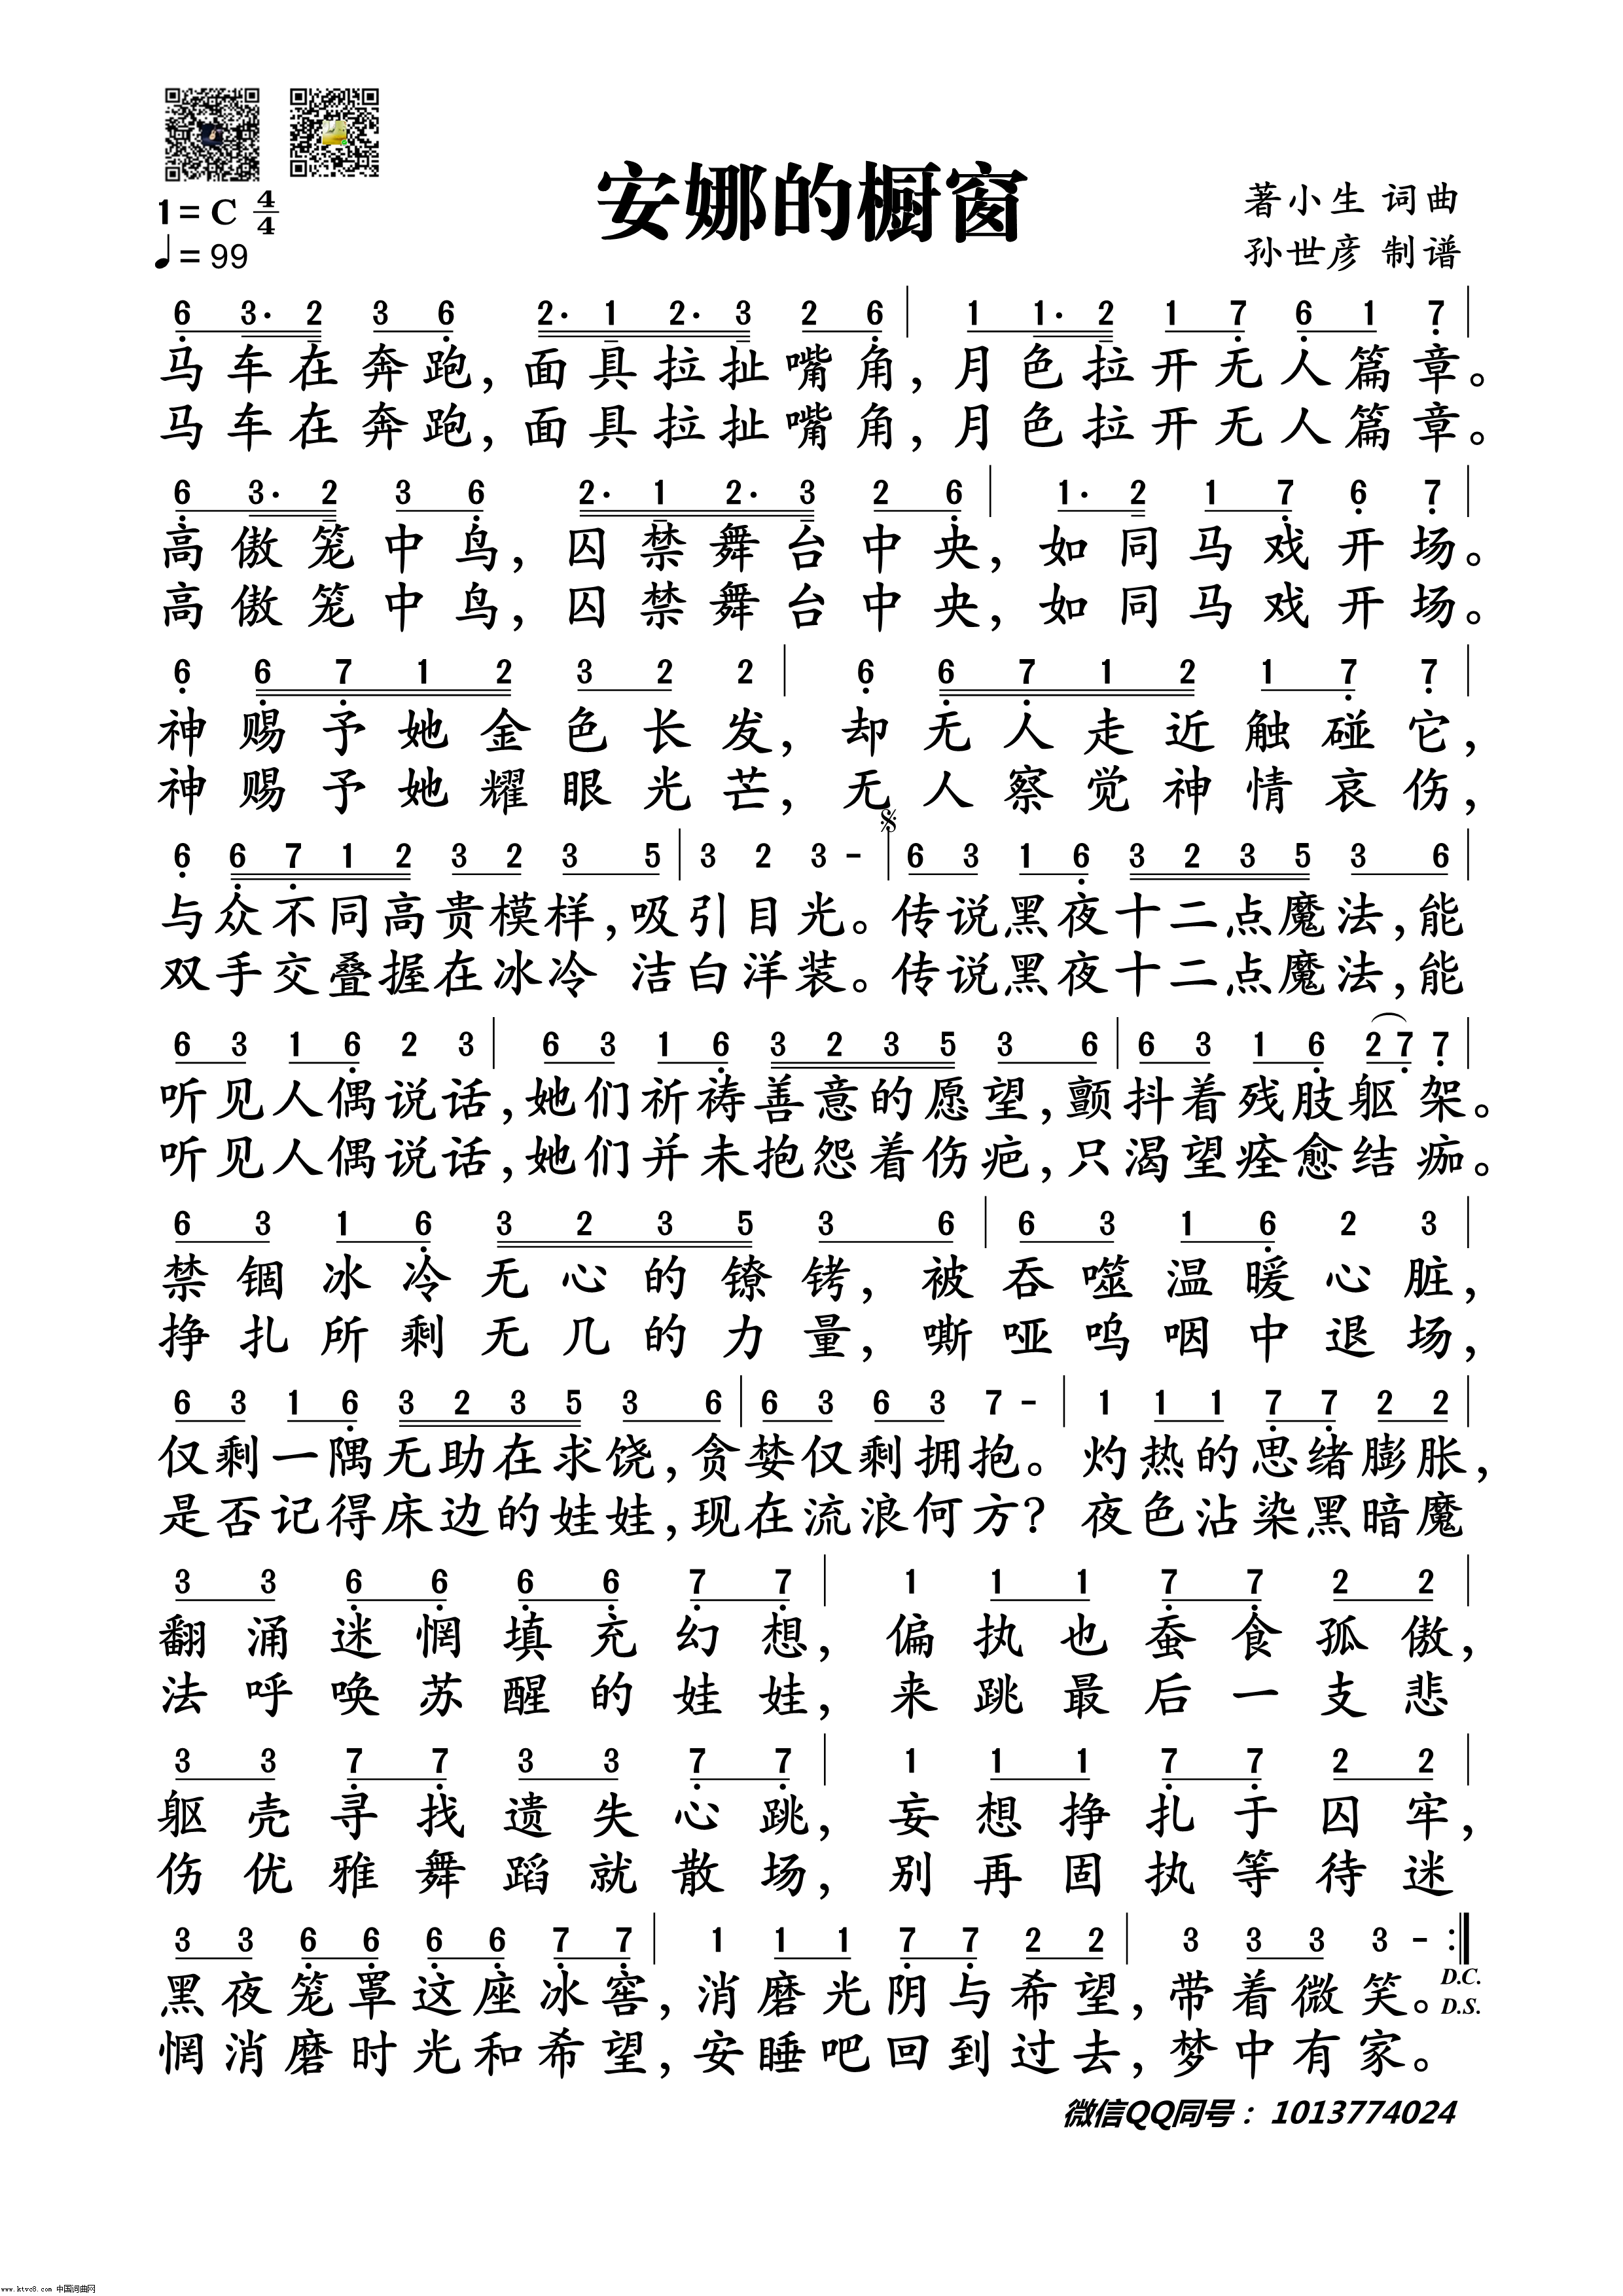 安娜的橱窗
1=C 4/4
♩=99
著小生 词曲
孙世彦 制谱
6 3· 2 3 6 2· 1 2· 3 2 6 | 1 1· 2 1 7 6 1 7 |
马车在奔跑，面具拉扯嘴角，月色拉开无人篇章。
马车在奔跑，面具拉扯嘴角，月色拉开无人篇章。
6 3· 2 3 6 2· 1 2· 3 2 6 | 1· 2 1 7 6 7 |
高傲笼中鸟，囚禁舞台中央，如同马戏开场。
高傲笼中鸟，囚禁舞台中央，如同马戏开场。
6 6 7 1 2 3 2 2 | 6 6 7 1 2 1 7 7 |
神赐予她金色长发，却无人走近触碰它，
神赐予她耀眼光芒，无人察觉神情哀伤，
6 6 7 1 2 3 2 3 5 | 3 2 3 - | 6 3 1 6 3 2 3 5 3 6 |
与众不同高贵模样，吸引目光。传说黑夜十二点魔法，能
双手交叠握在冰冷 洁白洋装。传说黑夜十二点魔法，能
6 3 1 6 2 3 | 6 3 1 6 3 2 3 5 3 6 | 6 3 1 6 2 7 7 |
听见人偶说话，她们祈祷善意的愿望，颤抖着残肢躯架。
听见人偶说话，她们并未抱怨着伤疤，只渴望痊愈结痂。
6 3 1 6 3 2 3 5 3 6 | 6 3 1 6 2 3 |
禁锢冰冷无心的镣铐，被吞噬温暖心脏，
挣扎所剩无几的力量，嘶哑呜咽中退场，
6 3 1 6 3 2 3 5 3 6 | 6 3 6 3 7 - | 1 1 1 7 7 2 2 |
仅剩一隅无助在求饶，贪婪仅剩拥抱。灼热的思绪膨胀，
是否记得床边的娃娃，现在流浪何方？ 夜色沾染黑暗魔
3 3 6 6 6 6 7 7 | 1 1 1 7 7 2 2 |
翻涌迷惘填充幻想，偏执也蚕食孤傲，
法呼唤苏醒的娃娃，来跳最后一支悲
3 3 7 7 3 3 7 7 | 1 1 1 7 7 2 2 |
躯壳寻找遗失心跳，妄想挣扎于囚牢，
伤优雅舞蹈就散场，别再固执等待迷
3 3 6 6 6 6 7 7 | 1 1 1 7 7 2 2 | 3 3 3 3 - :‖
黑夜笼罩这座冰窖，消磨光阴与希望，带着微笑。D.C.
D.S.
惘消磨时光和希望，安睡吧回到过去，梦中有家。
微信QQ同号：1013774024
www.ktvc8.com 中国词曲网